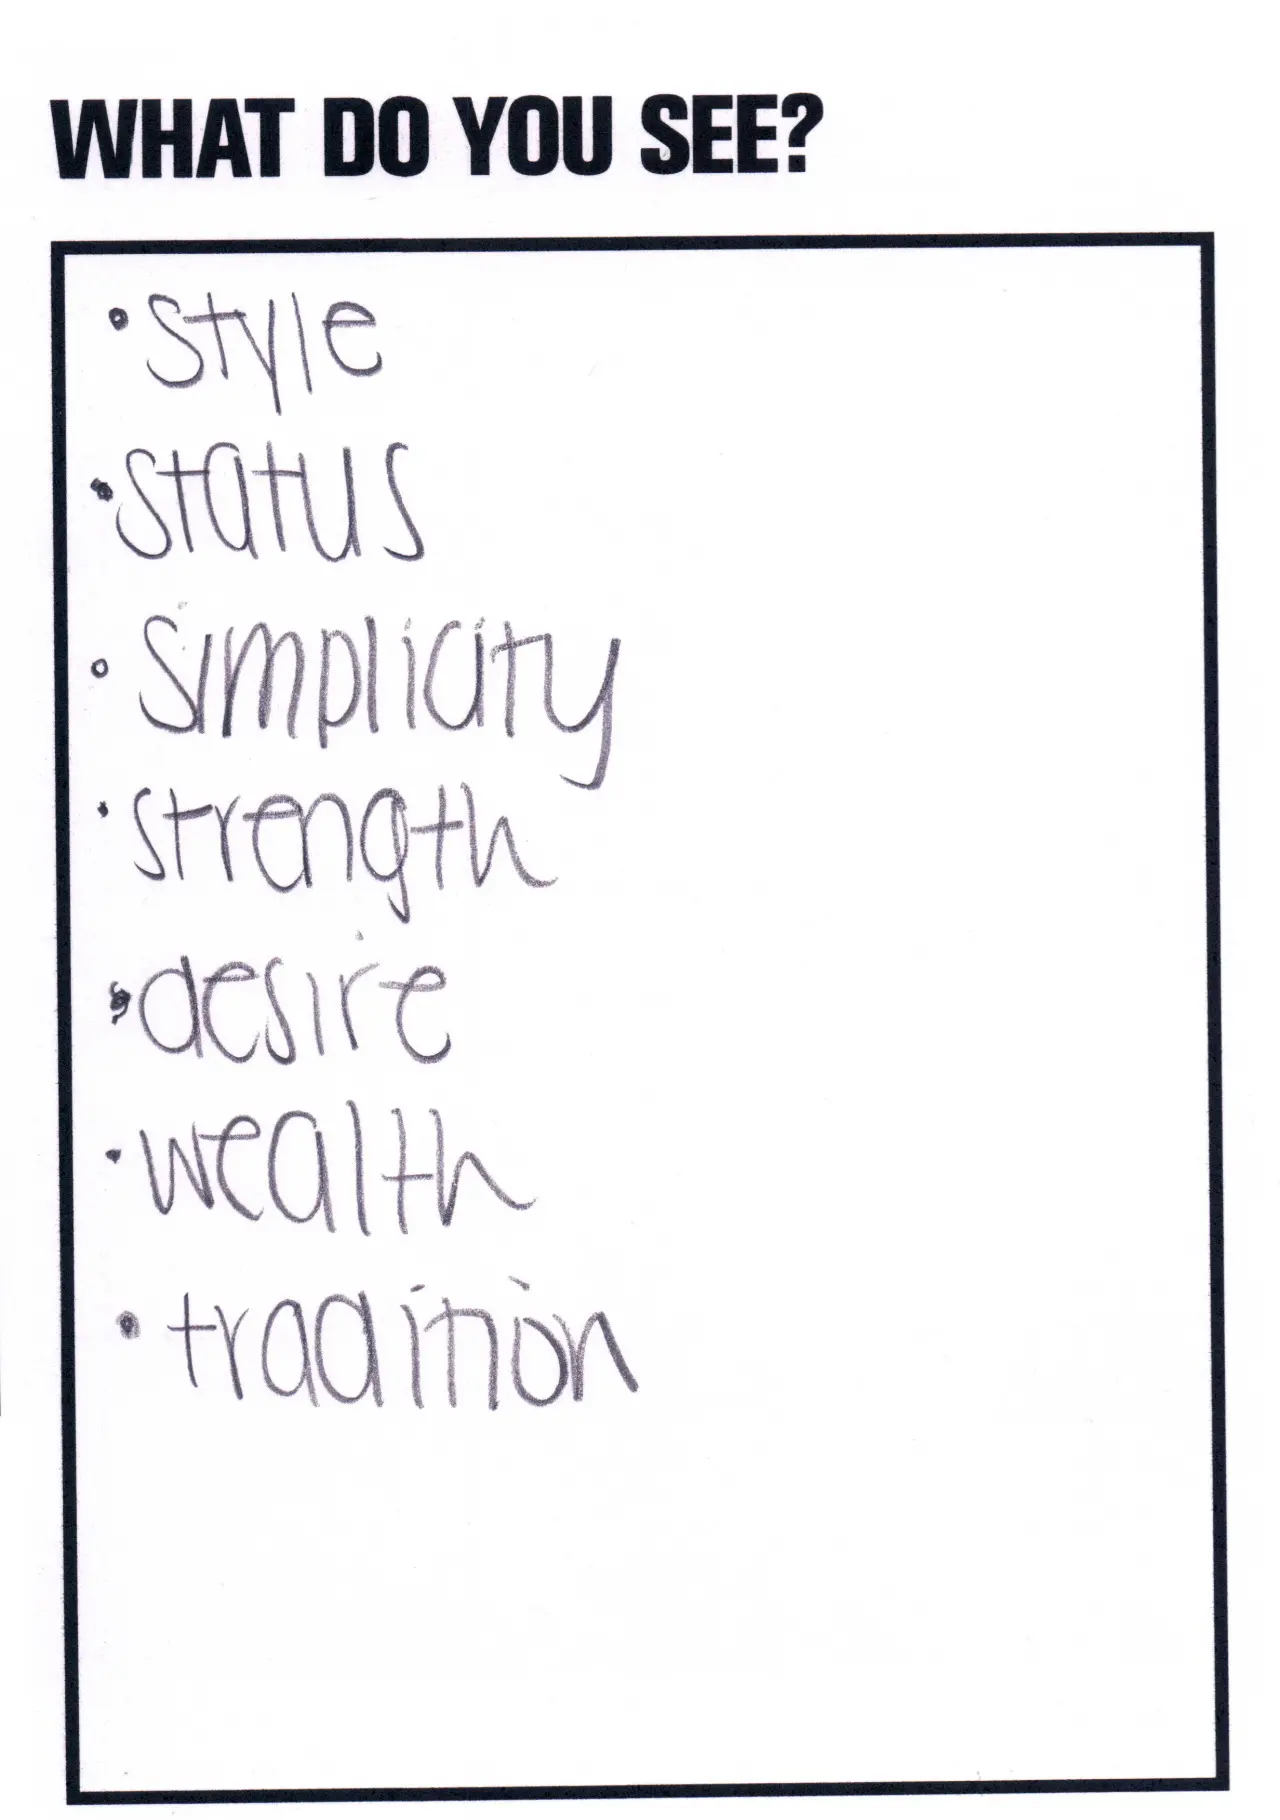 WHAT DO YOU SEE?
• style
• status
• simplicity
• strength
• desire
• wealth
• tradition